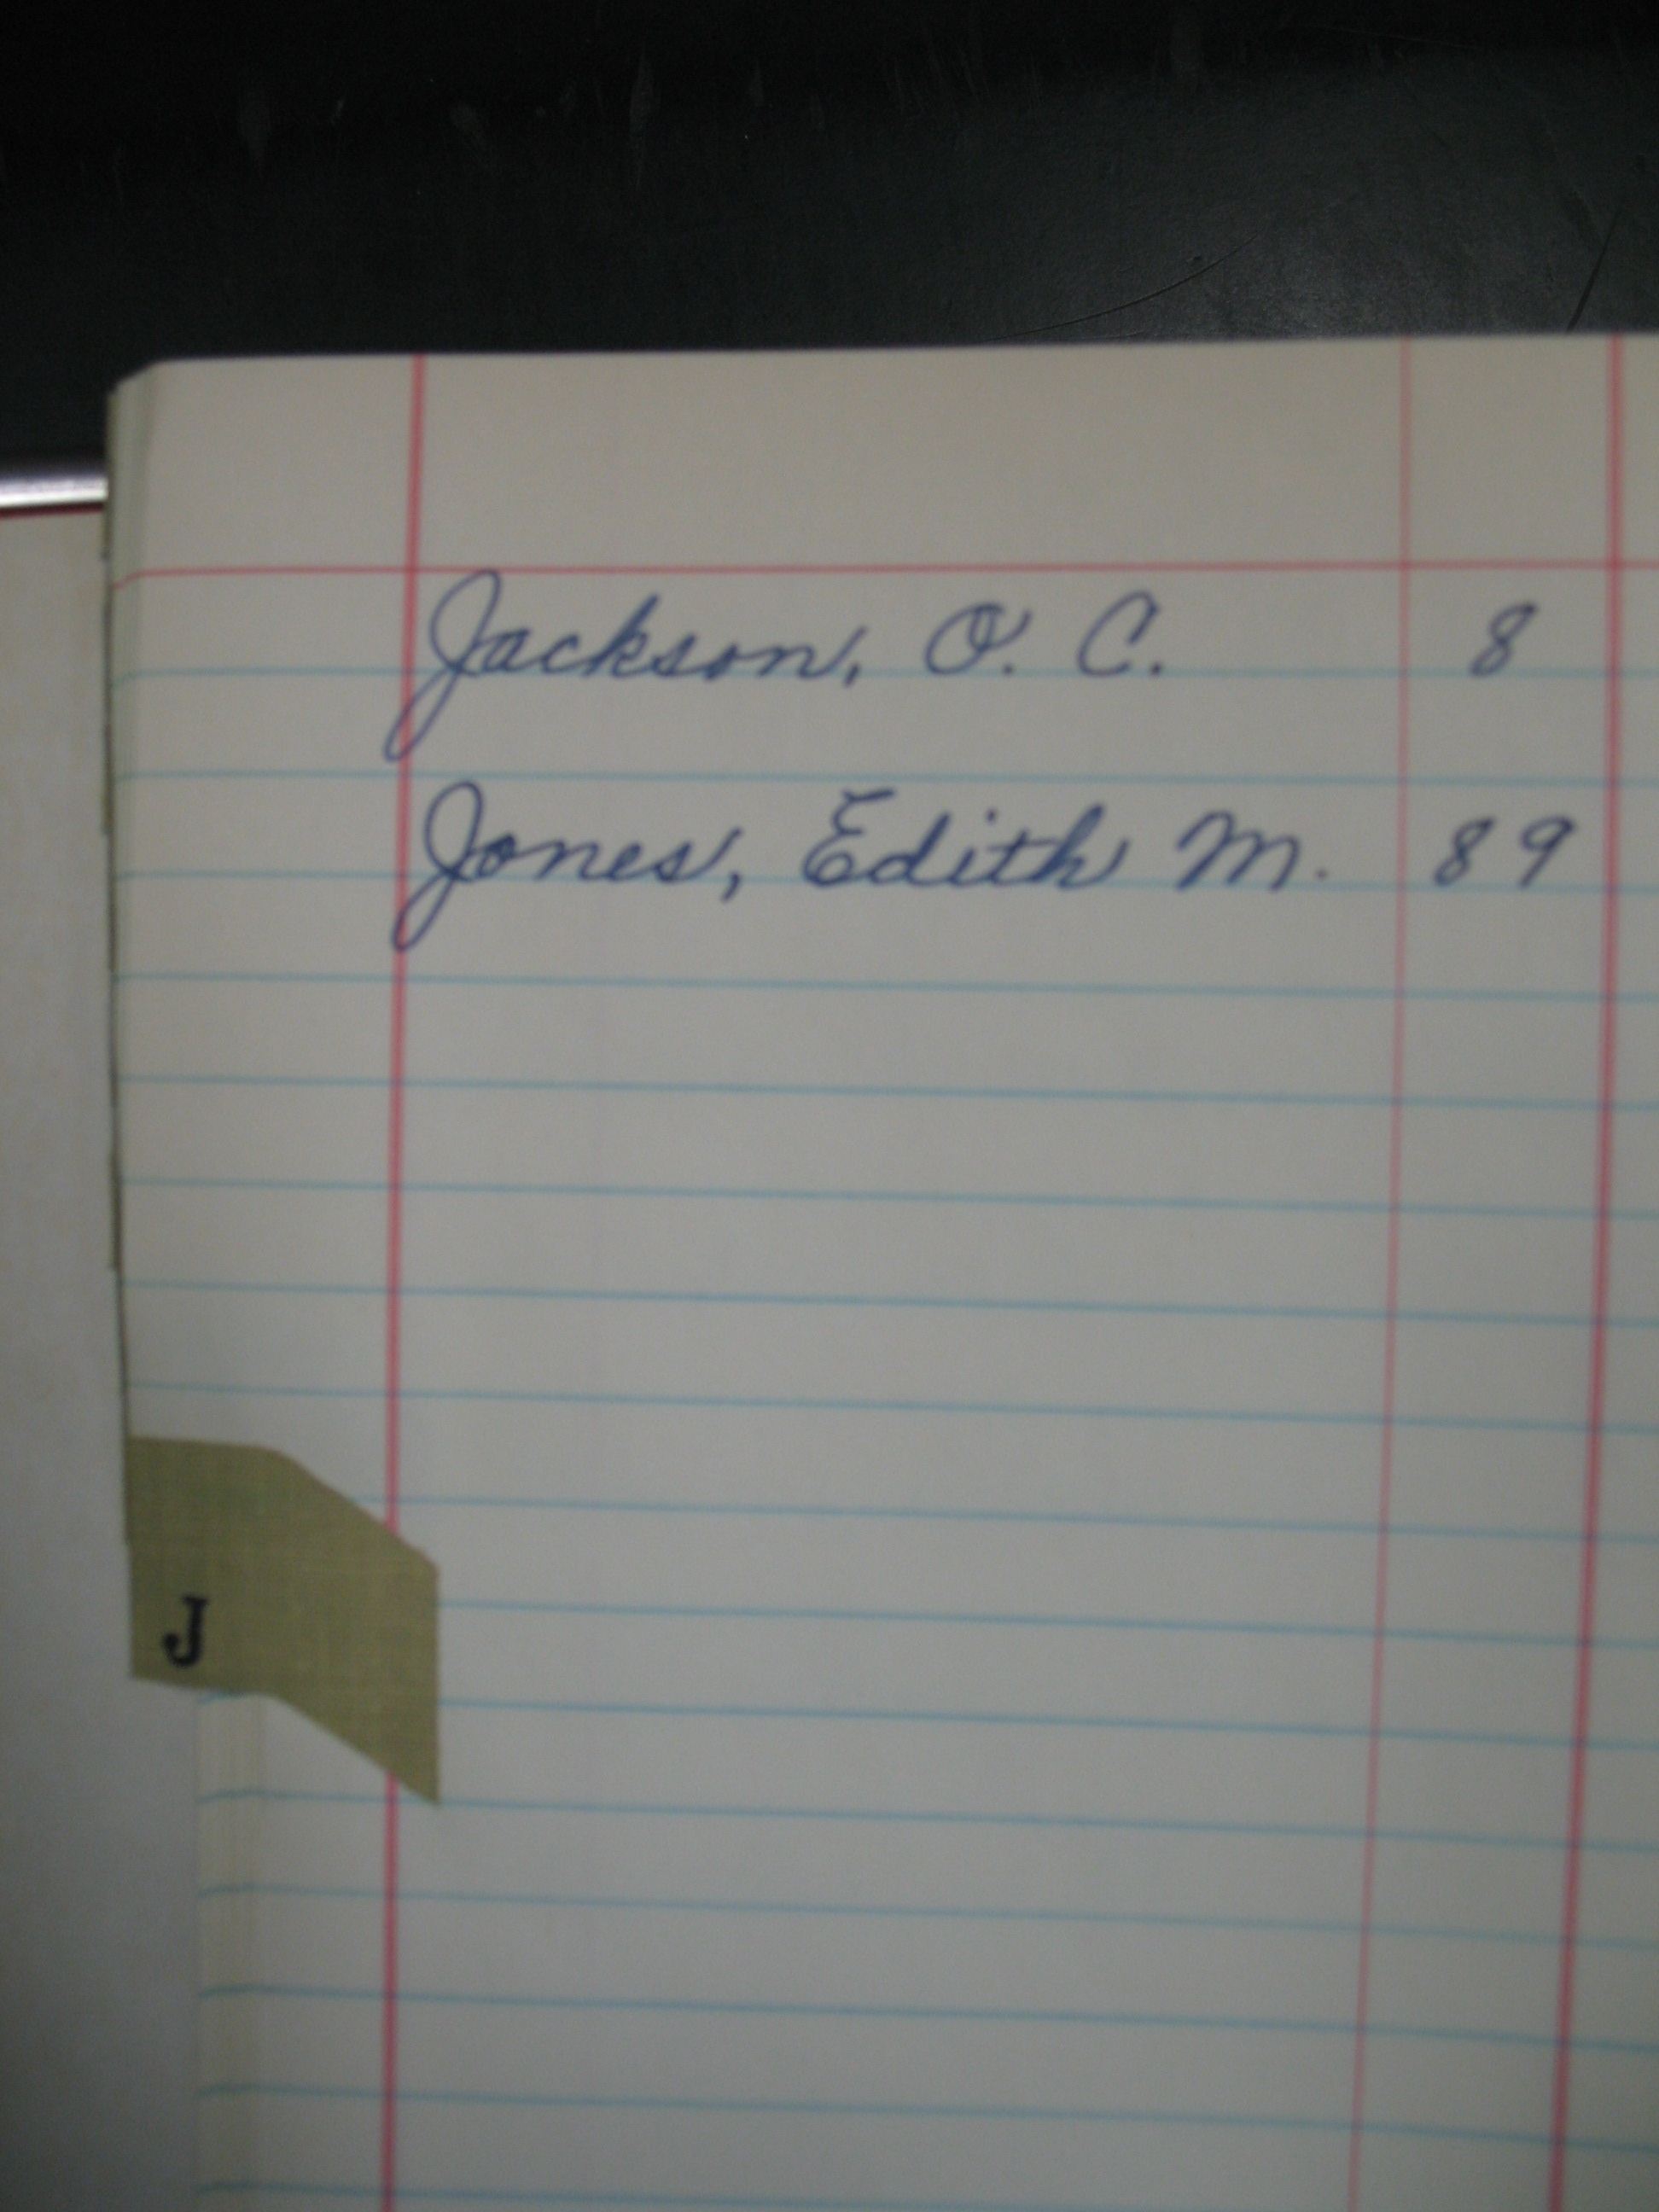 Jackson, O. C. 8
Jones, Edith M. 89
J